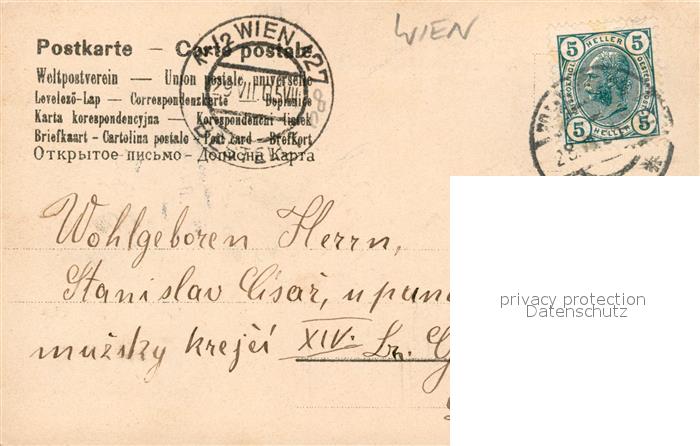 WIEN
Postkarte — Carte postale
Weltpostverein — Union postale universelle
Levelező-Lap — Correspondenzkarte — Dopisnice
Karta korespondencyjna — Korespondenční lístek
Briefkaart - Cartolina postale - Post card - Brefkort
Открытое письмо - Дописна Карта
WIEN 27
BESTELLT
5 HELLER 5
5 HELLER 5
28
Wohlgeboren Herrn,
Stanislav Císař, u pana
mužsky krejčí XIV.
privacy protection
Datenschutz